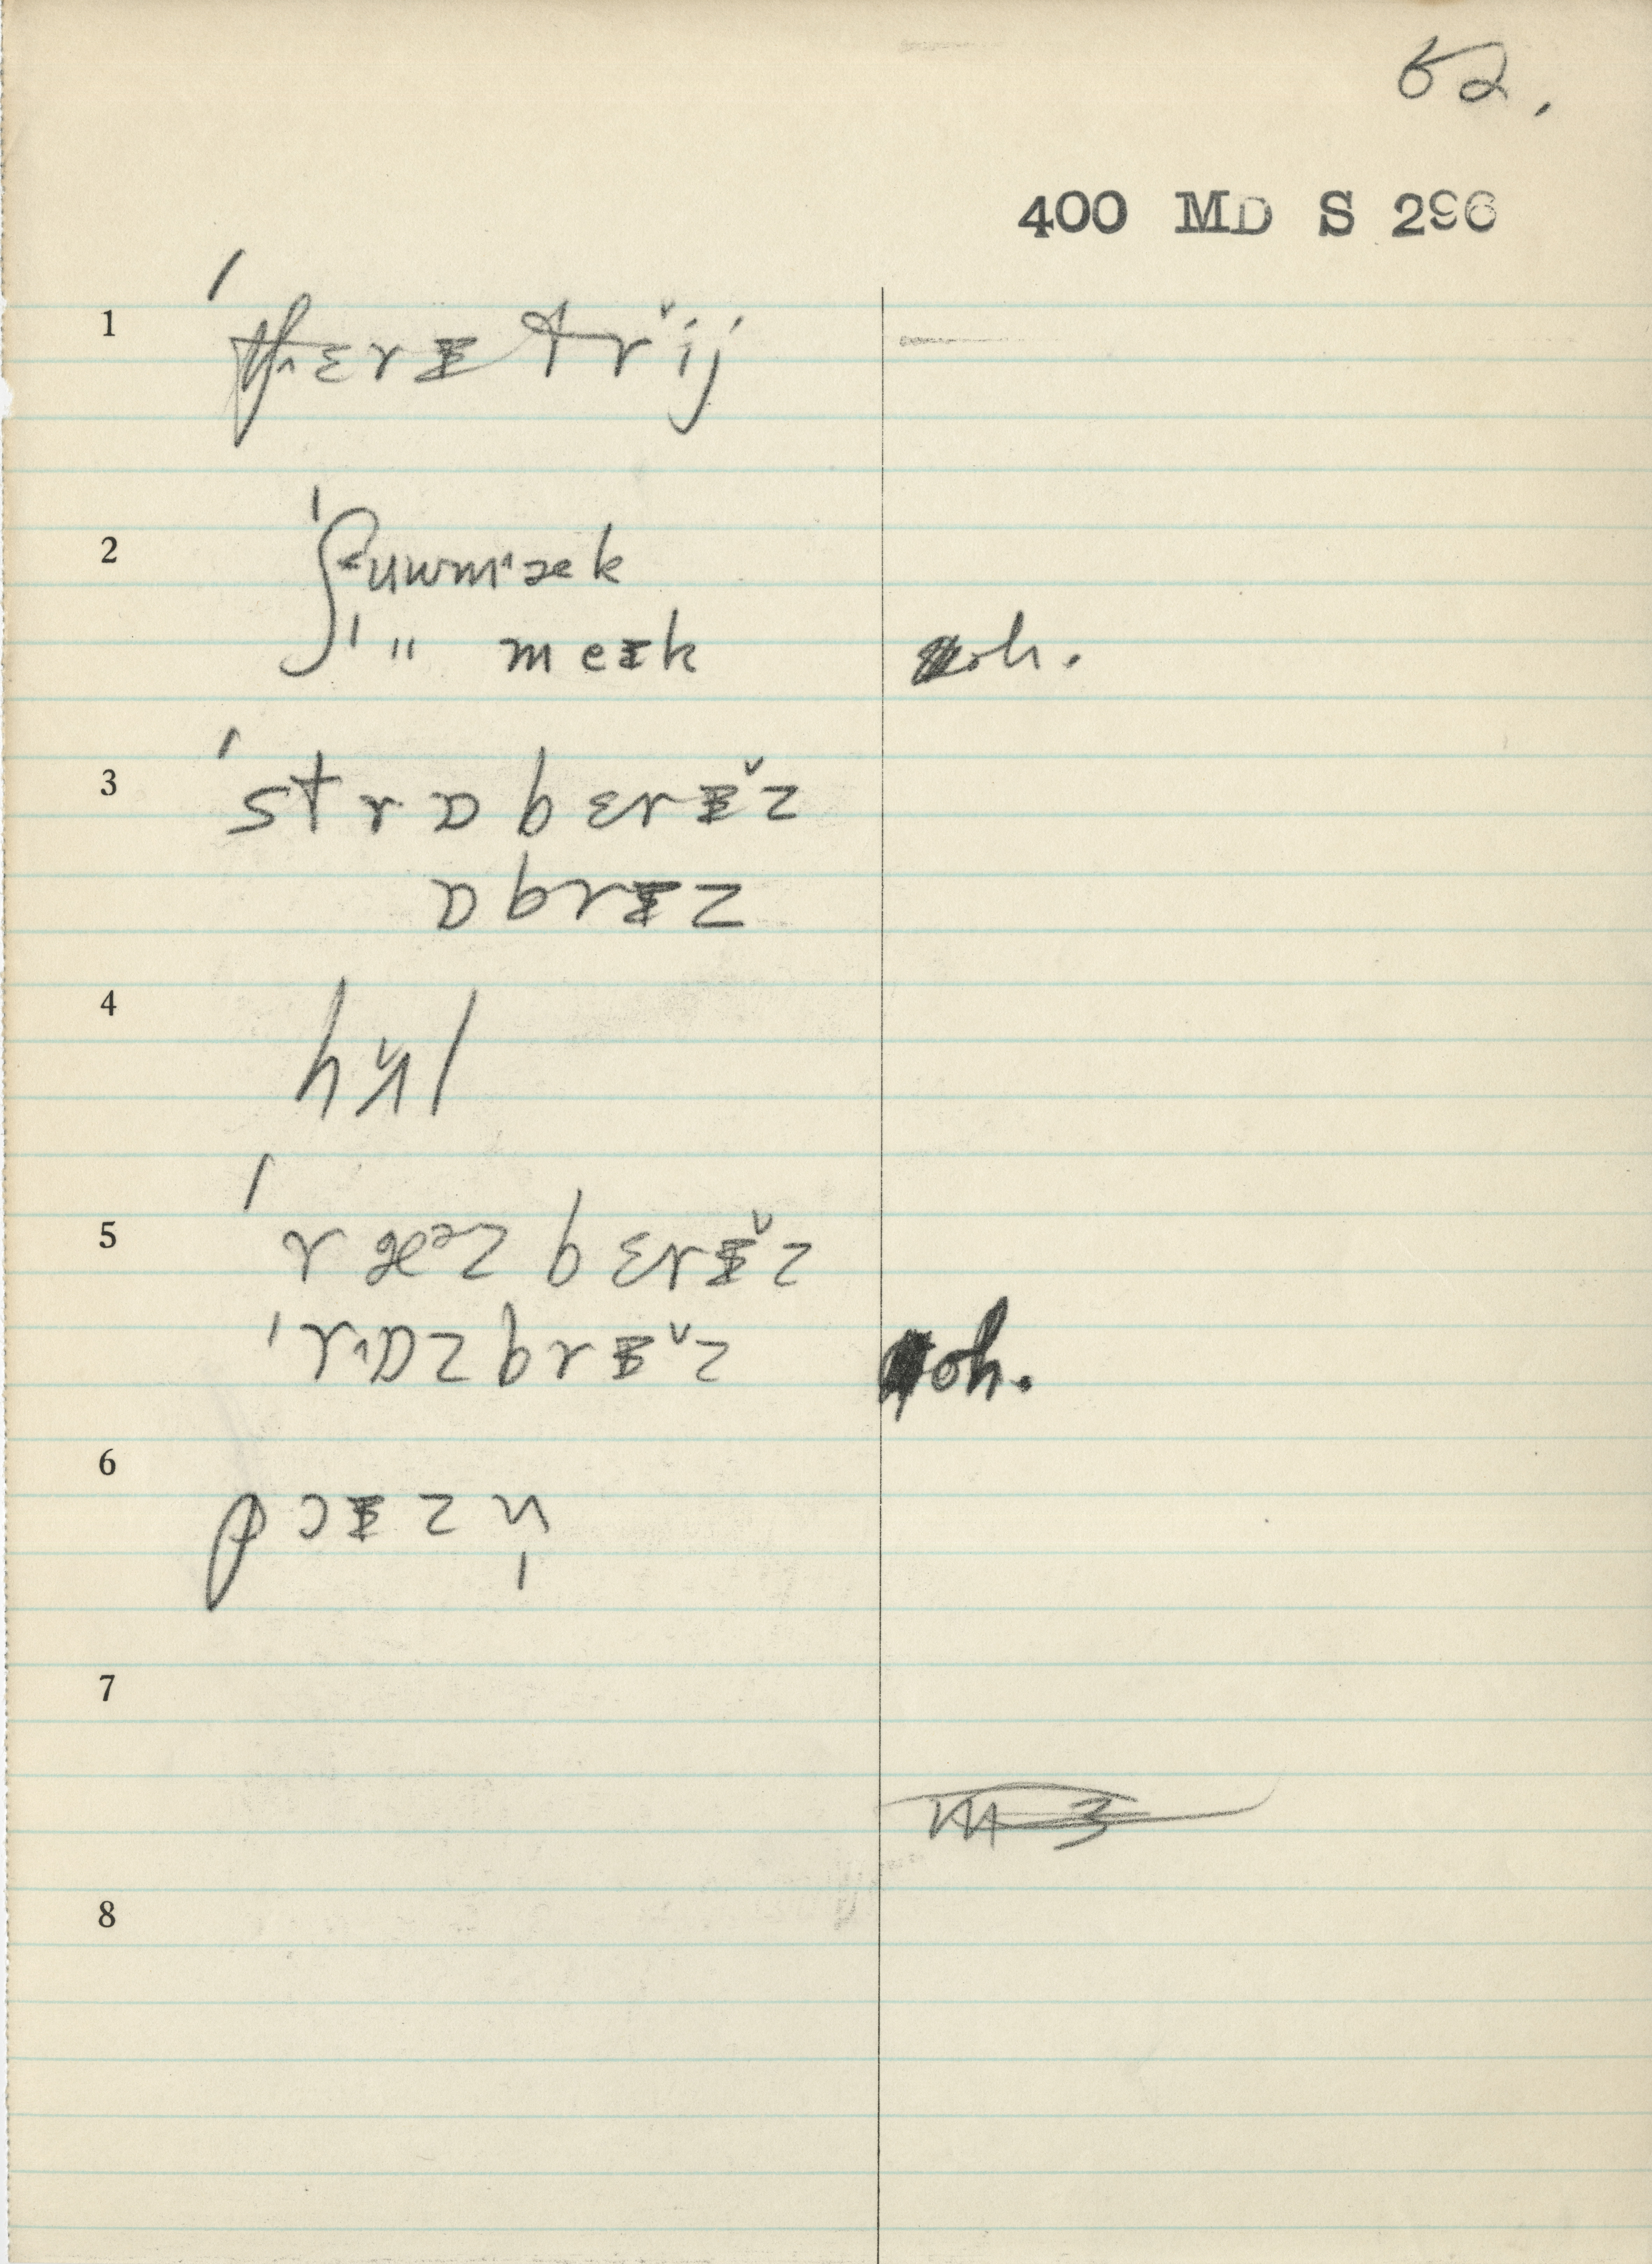 62.
400 MD S 296
1 ˈtʃɛrɪ trˇij
2 ˈʃuwmˈæk
ˈ " meɪk oh.
3 ˈstrɒbɛrɪˇz
ɒbrɪz
4 hʌˇl
5 ˈræᵊzbɛrɪˇz
ˈrɒzbrɪˇz oh.
6 pɔɪzn̩
7
8